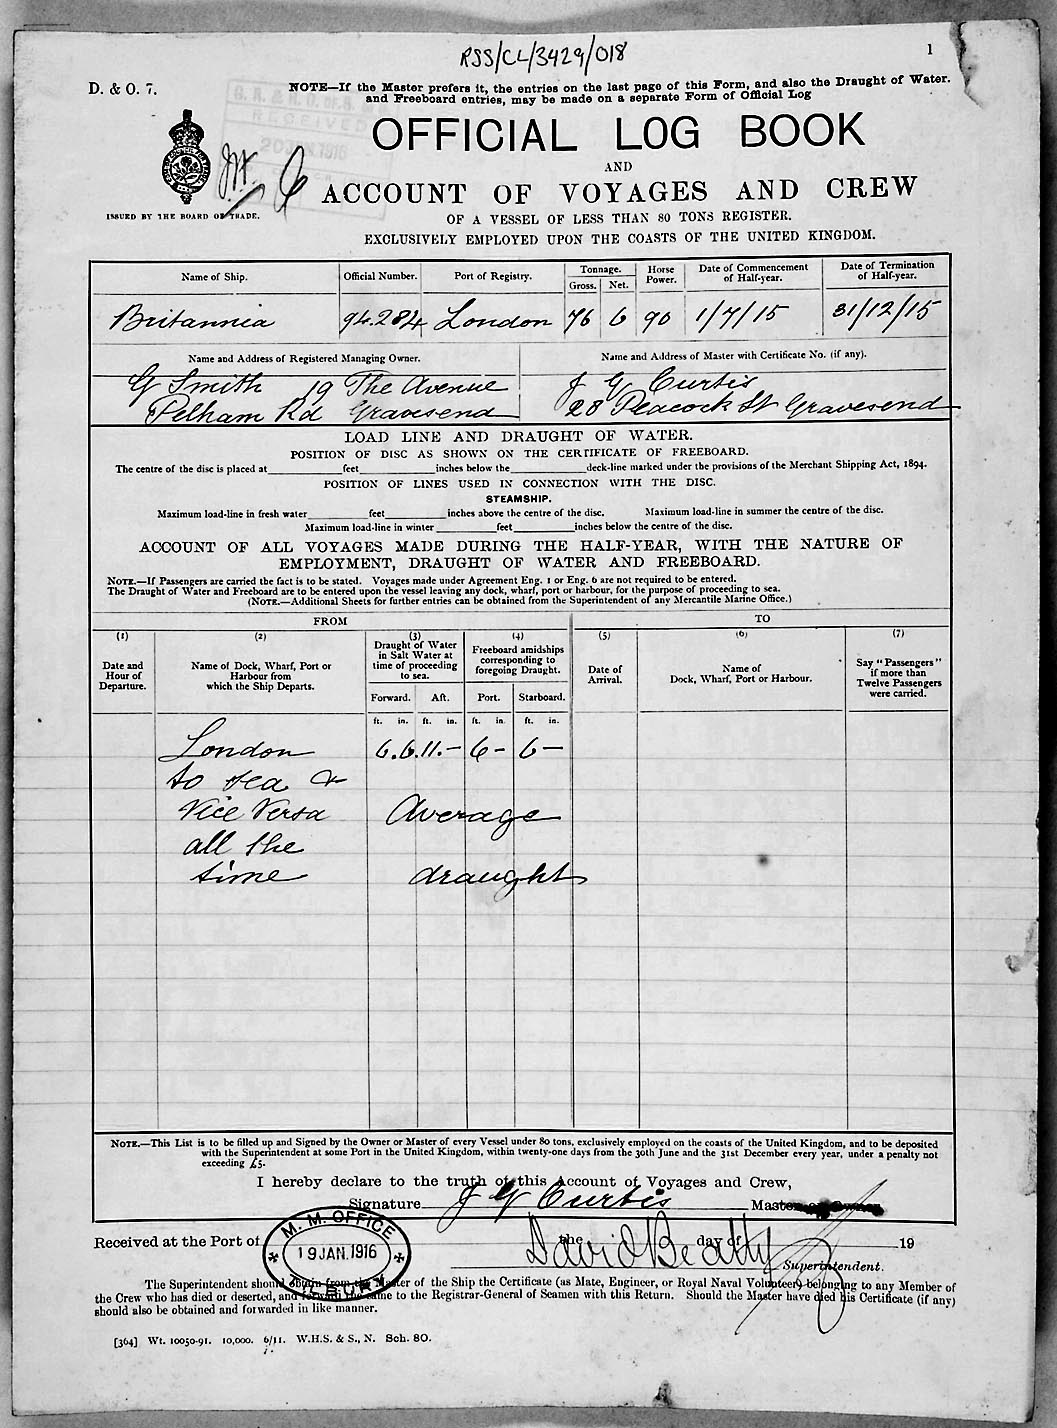 RSS/CL/3429/018
1
D. & O. 7.
NOTE—If the Master prefers it, the entries on the last page of this Form, and also the Draught of Water.
and Freeboard entries, may be made on a separate Form of Official Log
RECEIVED
20 JAN. 1916
OFFICIAL LOG BOOK
AND
ACCOUNT OF VOYAGES AND CREW
ISSUED BY THE BOARD OF TRADE.
OF A VESSEL OF LESS THAN 80 TONS REGISTER.
EXCLUSIVELY EMPLOYED UPON THE COASTS OF THE UNITED KINGDOM.
Name of Ship. Official Number. Port of Registry. Tonnage. Gross. Net. Horse Power. Date of Commencement of Half-year. Date of Termination of Half-year.
Britannia 94.284 London 76 6 90 1/7/15 31/12/15
Name and Address of Registered Managing Owner. Name and Address of Master with Certificate No. (if any).
G Smith 19 The Avenue J G Curtis
Pelham Rd Gravesend 28 Peacock St Gravesend
LOAD LINE AND DRAUGHT OF WATER.
POSITION OF DISC AS SHOWN ON THE CERTIFICATE OF FREEBOARD.
The centre of the disc is placed at feet inches below the deck-line marked under the provisions of the Merchant Shipping Act, 1894.
POSITION OF LINES USED IN CONNECTION WITH THE DISC.
STEAMSHIP.
Maximum load-line in fresh water feet inches above the centre of the disc. Maximum load-line in summer the centre of the disc.
Maximum load-line in winter feet inches below the centre of the disc.
ACCOUNT OF ALL VOYAGES MADE DURING THE HALF-YEAR, WITH THE NATURE OF
EMPLOYMENT, DRAUGHT OF WATER AND FREEBOARD.
NOTE.—If Passengers are carried the fact is to be stated. Voyages made under Agreement Eng. 1 or Eng. 6 are not required to be entered.
The Draught of Water and Freeboard are to be entered upon the vessel leaving any dock, wharf, port or harbour, for the purpose of proceeding to sea.
(NOTE.—Additional Sheets for further entries can be obtained from the Superintendent of any Mercantile Marine Office.)
FROM TO
(1) (2) (3) (4) (5) (6) (7)
Date and Hour of Departure. Name of Dock, Wharf, Port or Harbour from which the Ship Departs. Draught of Water in Salt Water at time of proceeding to sea. Freeboard amidships corresponding to foregoing Draught. Date of Arrival. Name of Dock, Wharf, Port or Harbour. Say "Passengers" if more than Twelve Passengers were carried.
Forward. Aft. Port. Starboard.
ft. in. ft. in. ft. in. ft. in.
London 6.6 11.– 6– 6–
to sea &
Vice Versa Average
all the
time draught
NOTE.—This List is to be filled up and Signed by the Owner or Master of every Vessel under 80 tons, exclusively employed on the coasts of the United Kingdom, and to be deposited
with the Superintendent at some Port in the United Kingdom, within twenty-one days from the 30th June and the 31st December every year, under a penalty not
exceeding £5.
I hereby declare to the truth of this Account of Voyages and Crew,
Signature J G Curtis Master or Owner
Received at the Port of the day of 19
M. M. OFFICE
19 JAN. 1916
TILBURY
David Beatty
Superintendent.
The Superintendent should obtain from the Master of the Ship the Certificate (as Mate, Engineer, or Royal Naval Volunteer) belonging to any Member of
the Crew who has died or deserted, and forward the same to the Registrar-General of Seamen with this Return. Should the Master have died his Certificate (if any)
should also be obtained and forwarded in like manner.
[364] Wt. 10050-91. 10,000. 6/11. W.H.S. & S., N. Sch. 80.